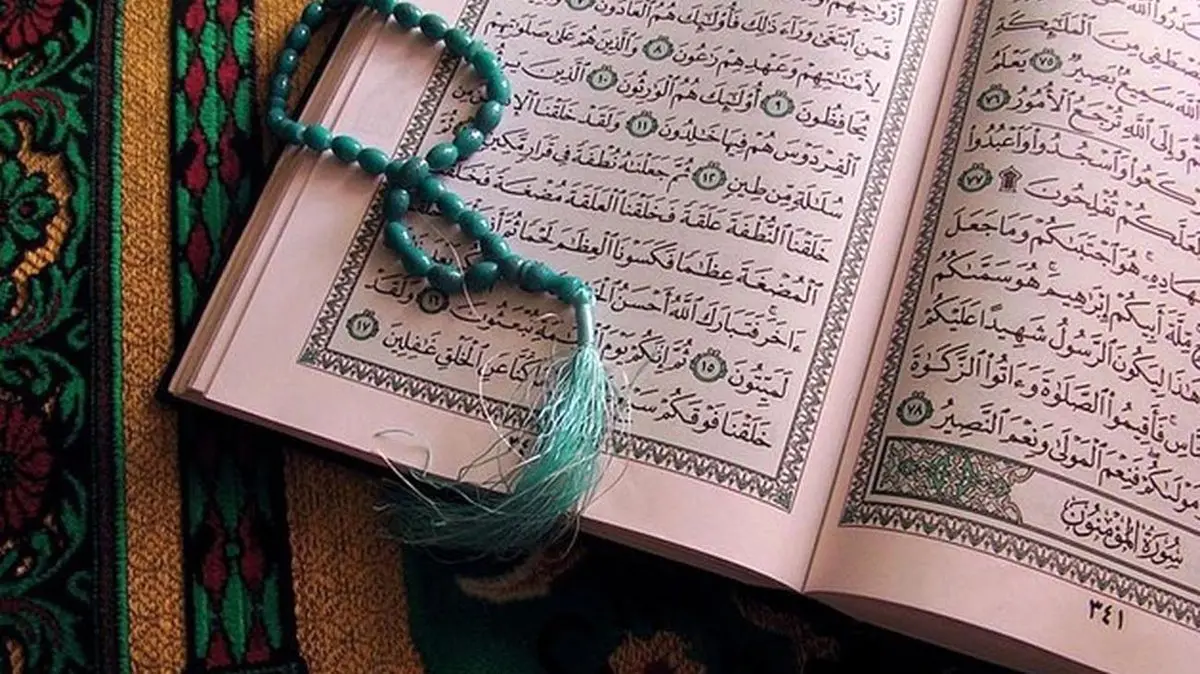 مِنَ ٱلْمَلَٰٓئِكَةِ
ٱللَّهَ سَمِيعٌۢ بَصِيرٌ ٧٥ يَعْلَمُ
وَإِلَى ٱللَّهِ تُرْجَعُ ٱلْأُمُورُ ٧٦
وَٱسْجُدُوا۟ وَٱعْبُدُوا۟
تُفْلِحُونَ ۩ ٧٧
هُوَ ٱجْتَبَىٰكُمْ وَمَا جَعَلَ
مِّلَّةَ أَبِيكُمْ إِبْرَٰهِيمَ هُوَ سَمَّىٰكُمُ
هَٰذَا لِيَكُونَ ٱلرَّسُولُ شَهِيدًا عَلَيْكُمْ
فَأَقِيمُوا۟ ٱلصَّلَوٰةَ وَءَاتُوا۟ ٱلزَّكَوٰةَ
فَنِعْمَ ٱلْمَوْلَىٰ وَنِعْمَ ٱلنَّصِيرُ ٧٨
سُورَةُ المُؤْمِنُونَ
٣٤١
فَمَنِ ٱبْتَغَىٰ وَرَآءَ ذَٰلِكَ فَأُو۟لَٰٓئِكَ هُمُ ٱلْعَادُونَ ٧
لِأَمَٰنَٰتِهِمْ وَعَهْدِهِمْ رَٰعُونَ ٨ وَٱلَّذِينَ هُمْ عَلَىٰ صَلَوَٰتِهِمْ
يُحَافِظُونَ ٩ أُو۟لَٰٓئِكَ هُمُ ٱلْوَٰرِثُونَ ١٠ ٱلَّذِينَ
ٱلْفِرْدَوْسَ هُمْ فِيهَا خَٰلِدُونَ ١١ وَلَقَدْ خَلَقْنَا
سُلَٰلَةٍ مِّن طِينٍ ١٢ ثُمَّ جَعَلْنَٰهُ نُطْفَةً فِى قَرَارٍ مَّكِينٍ
خَلَقْنَا ٱلنُّطْفَةَ عَلَقَةً فَخَلَقْنَا ٱلْعَلَقَةَ مُضْغَةً
ٱلْمُضْغَةَ عِظَٰمًا فَكَسَوْنَا ٱلْعِظَٰمَ لَحْمًا ثُمَّ
ءَاخَرَ فَتَبَارَكَ ٱللَّهُ أَحْسَنُ
لَمَيِّتُونَ ١٥ ثُمَّ إِنَّكُمْ يَوْمَ تُبْعَثُونَ ١٦ وَلَقَدْ
خَلَقْنَا فَوْقَكُمْ كُنَّا عَنِ ٱلْخَلْقِ غَٰفِلِينَ ١٧